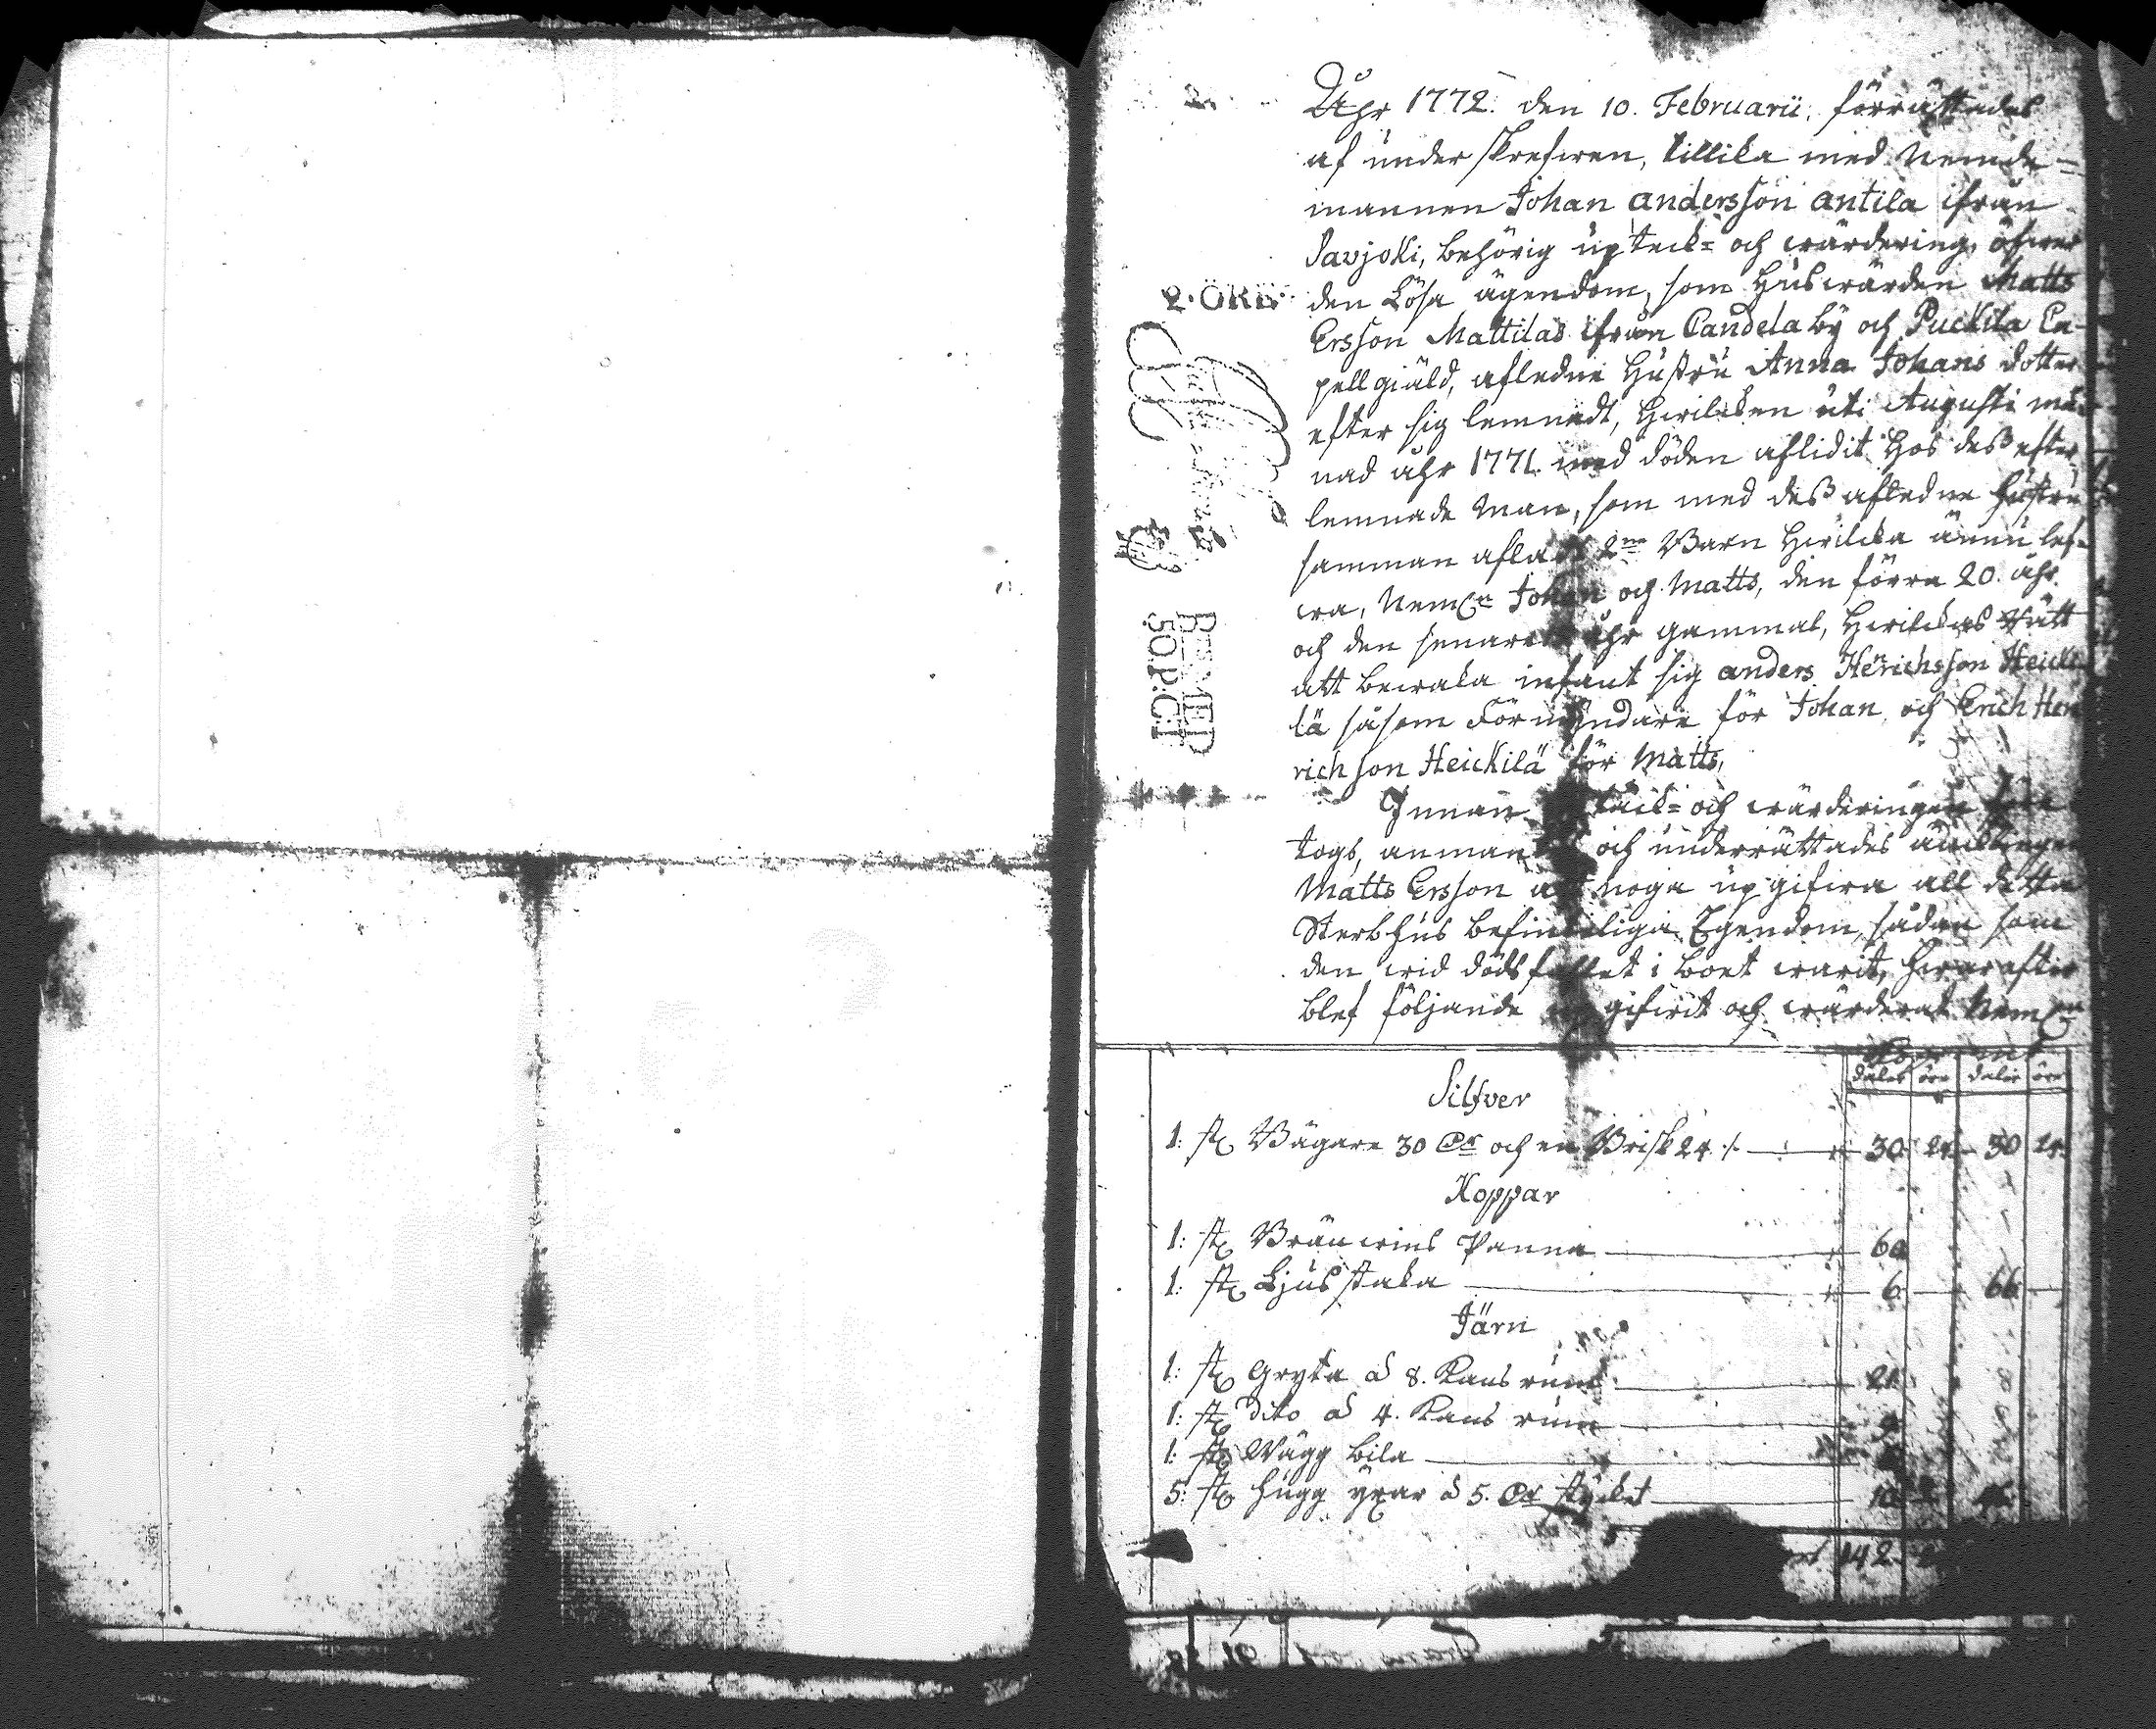 Åhr 1772. den 10. Februarii, förrättades
af underskrefwen, tillika med Nemde-
mannen Johan andersson antila ifrån
Savjoki, behörig upteck= och wärdering, öfwer
den Lösa ägendom, som Huswärden Matts
Ersson Mattilas ifrån Candela by och Puckila Ca-
pellgiäld, afledne Hustru Anna Johans dotter
efter sig lemnadt, Hwilcken uti Augusti må-
nad åhr 1771. med döden aflidit Hos dess efter
lemnade Man, som med dess afledne Hustru
samman aflade 2ne Barn Hwilcka ännu lef-
wa, Neml:n Johan och Matts, den förra 20. åhr
och den senare åhr gammal, Hwilckas Rätt
att bewaka infant sig anders Henrichsson Heicki
lä såsom Förmyndare för Johan och Erich Hen
richson Heickilä för Matts,
Innan teck= och wärderingen före
togs, anmantes och underrättades änklingen
Matts Ersson att noga upgifwa all detta
Sterbhus befinteliga Egendom, sådan som
den wid dödsfallet i boet warit, hwarefter
blef följande upgifwit och wärderat Neml:n
daler öre daler öre
Silfver
1: st Bägare 30 Dr och en Brisk 24 :/. 30 24 30 24
Koppar
1: st Bränwins Panna 60
1: st Ljusstaka 6 66
Järn
1: st Gryta à 8. Kans rum 21
1: st dito à 4. Kans rum
1: st Wägg bila
5: st Hugg yxar à 5. Dr stycket
142
2. ÖRE
50 P:CT